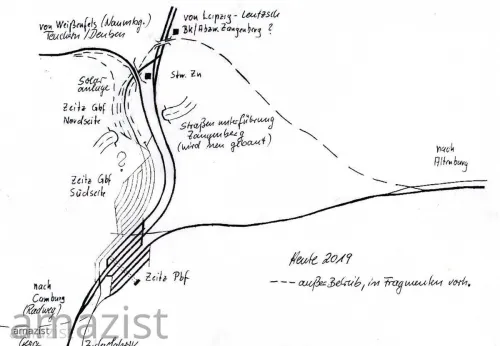 von Weißenfels (Naumbg.)
Teuchern/Deuben
von Leipzig-Leutzsch
Bk/Abzw. Zangenberg ?
Solar
anlage
Stw. Zn
Zeitz Gbf
Nordseite
Straßenunterführung
Zangenberg
(wird neu gebaut)
?
nach
Altenburg
Zeitz Gbf
Südseite
Heute 2019
--- außer Betrieb, in Fragmenten vorh.
Zeitz Pbf
nach
Camburg
(Radweg)
amazist
amazist